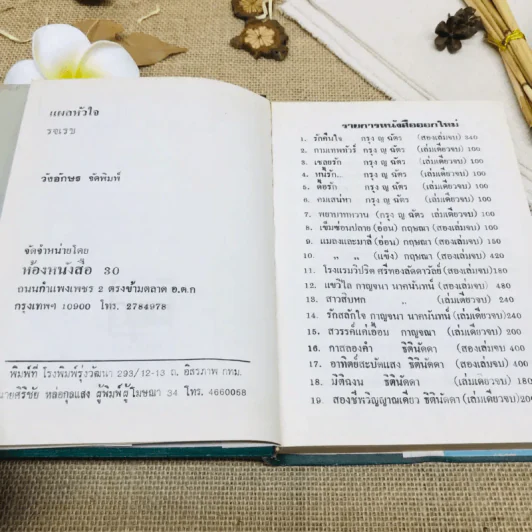 แผลหัวใจ
รจเรข
วังลักษธ จัดพิมพ์
จัดจำหน่ายโดย
ห้องหนังสือ 30
ถนนกำแพงเพชร 2 ตรงข้ามตลาด อ.ต.ก
กรุงเทพฯ 10900 โทร. 2784978
พิมพ์ที่ โรงพิมพ์รุ่งวัฒนา 293/12-13 ถ. อิสรภาพ กทม.
นายศิริชัย หล่อกุลแสง ผู้พิมพ์ผู้โฆษณา 34 โทร. 4660058
รายการหนังสือออกใหม่
1. รักคืนใจ กรุง ญ ฉัตร (สองเล่มจบ) 240
2. กามเทพทัวร์ กรุง ญ ฉัตร (เล่มเดียวจบ) 100
3. เชลยรัก กรุง ญ ฉัตร (เล่มเดียวจบ) 100
4. หนี้รัก.. กรุง ญ ฉัตร (เล่มเดียวจบ) 100
5. ดื้อรัก กรุง ญ ฉัตร (เล่มเดียวจบ) 100
6. คมเสน่หา กรุง ญ ฉัตร (เล่มเดียวจบ) 100
7. พยาบาทหวาน (กรุง ญ ฉัตร เล่มเดียวจบ) 100
8. เข็มซ่อนปลาย (อ่อน) กฤษณา (สองเล่มจบ)
9. แมลงและมาลี (อ่อน) กฤษณา (สองเล่มจบ) 150
10. " " (แข็ง) กฤษณา (สองเล่มจบ) 420
11. โรงแรมวิปริต ศรีทองลัดดาวัลย์ (สองเล่มจบ)180
12. แขวิไล กาญจนา นาคนันทน์ (สองเล่มจบ) 480
13. สาวสิบหก " (เล่มเดียวจบ) 240
14. รักสลักใจ กาญจนา นาคนันทน์ (เล่มเดียวจบ)240
15. สวรรค์แค่เอื้อม กาญจณา (สองเล่มจบ) 200
16. กาสลองคำ ธิตินัดดา (สองเล่มจบ 400
17. อาทิตย์สะบัดแสง ธิตินัดดา (สองเล่มจบ) 400
18. มิติลงน ธิตินัดดา (เล่มเดียวจบ) 180
19. สองชีพวิญญาณเดียว ธิตินัดดา(เล่มเดียวจบ)200